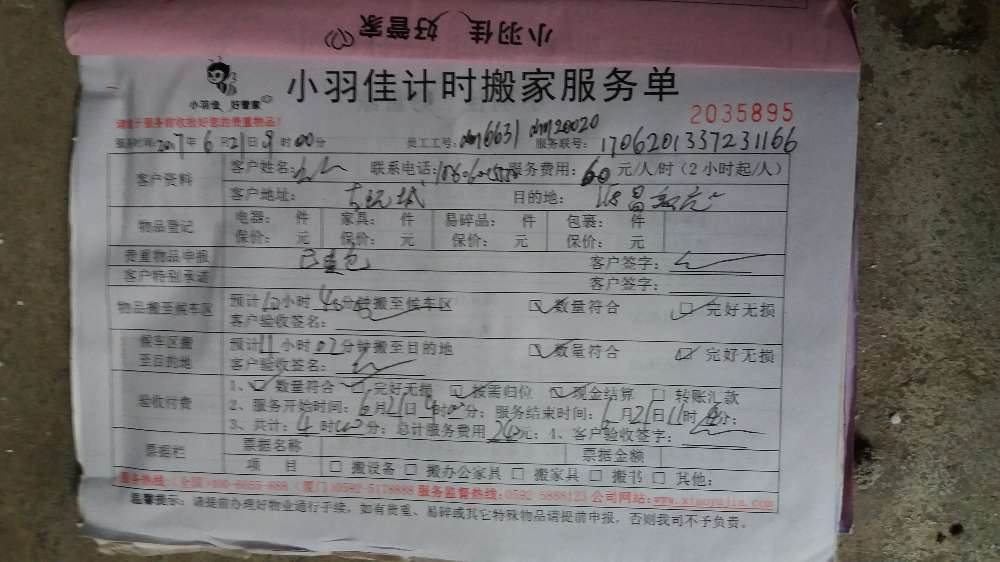 小羽佳 好管家
小羽佳 好管家
小羽佳计时搬家服务单
2035895
服务时间:2017年6月21日9时00分 员工工号: 服务联号:1706201337231166
客户资料
客户姓名: 联系电话: 服务费用:60元/人/时(2小时起/人)
客户地址: 目的地:
物品登记
电器: 件 家具: 件 易碎品: 件 包裹: 件
保价: 元 保价: 元 保价: 元 保价: 元
贵重物品申报 客户签字:
客户特别承诺 客户签字:
物品搬至候车区
预计10小时40分钟搬至候车区 ☑数量符合 ☑完好无损
客户验收签名:
候车区搬至目的地
预计11小时02分钟搬至目的地 ☑数量符合 ☑完好无损
客户验收签名:
验收付费
1、☑数量符合 ☑完好无损 ☑按需归位 ☑现金结算 □ 转账汇款
2、服务开始时间:6月21日 时 分;服务结束时间:6月21日11时 分;
3、共计:4时00分;总计服务费用240元;4、客户验收签字:
票据栏
票据名称 票据金额
项 目 □ 搬设备 □ 搬办公家具 □ 搬家具 □ 搬书 □ 其他:
服务热线:(全国)400-6655-888 (厦门)0592 5178888 服务监督热线:0592 5888123 公司网站:www.xiaoyujia.com
温馨提示:请提前办理好物业进行手续,如有贵重、易碎或其它特殊物品请提前申报,否则我司不予负责。